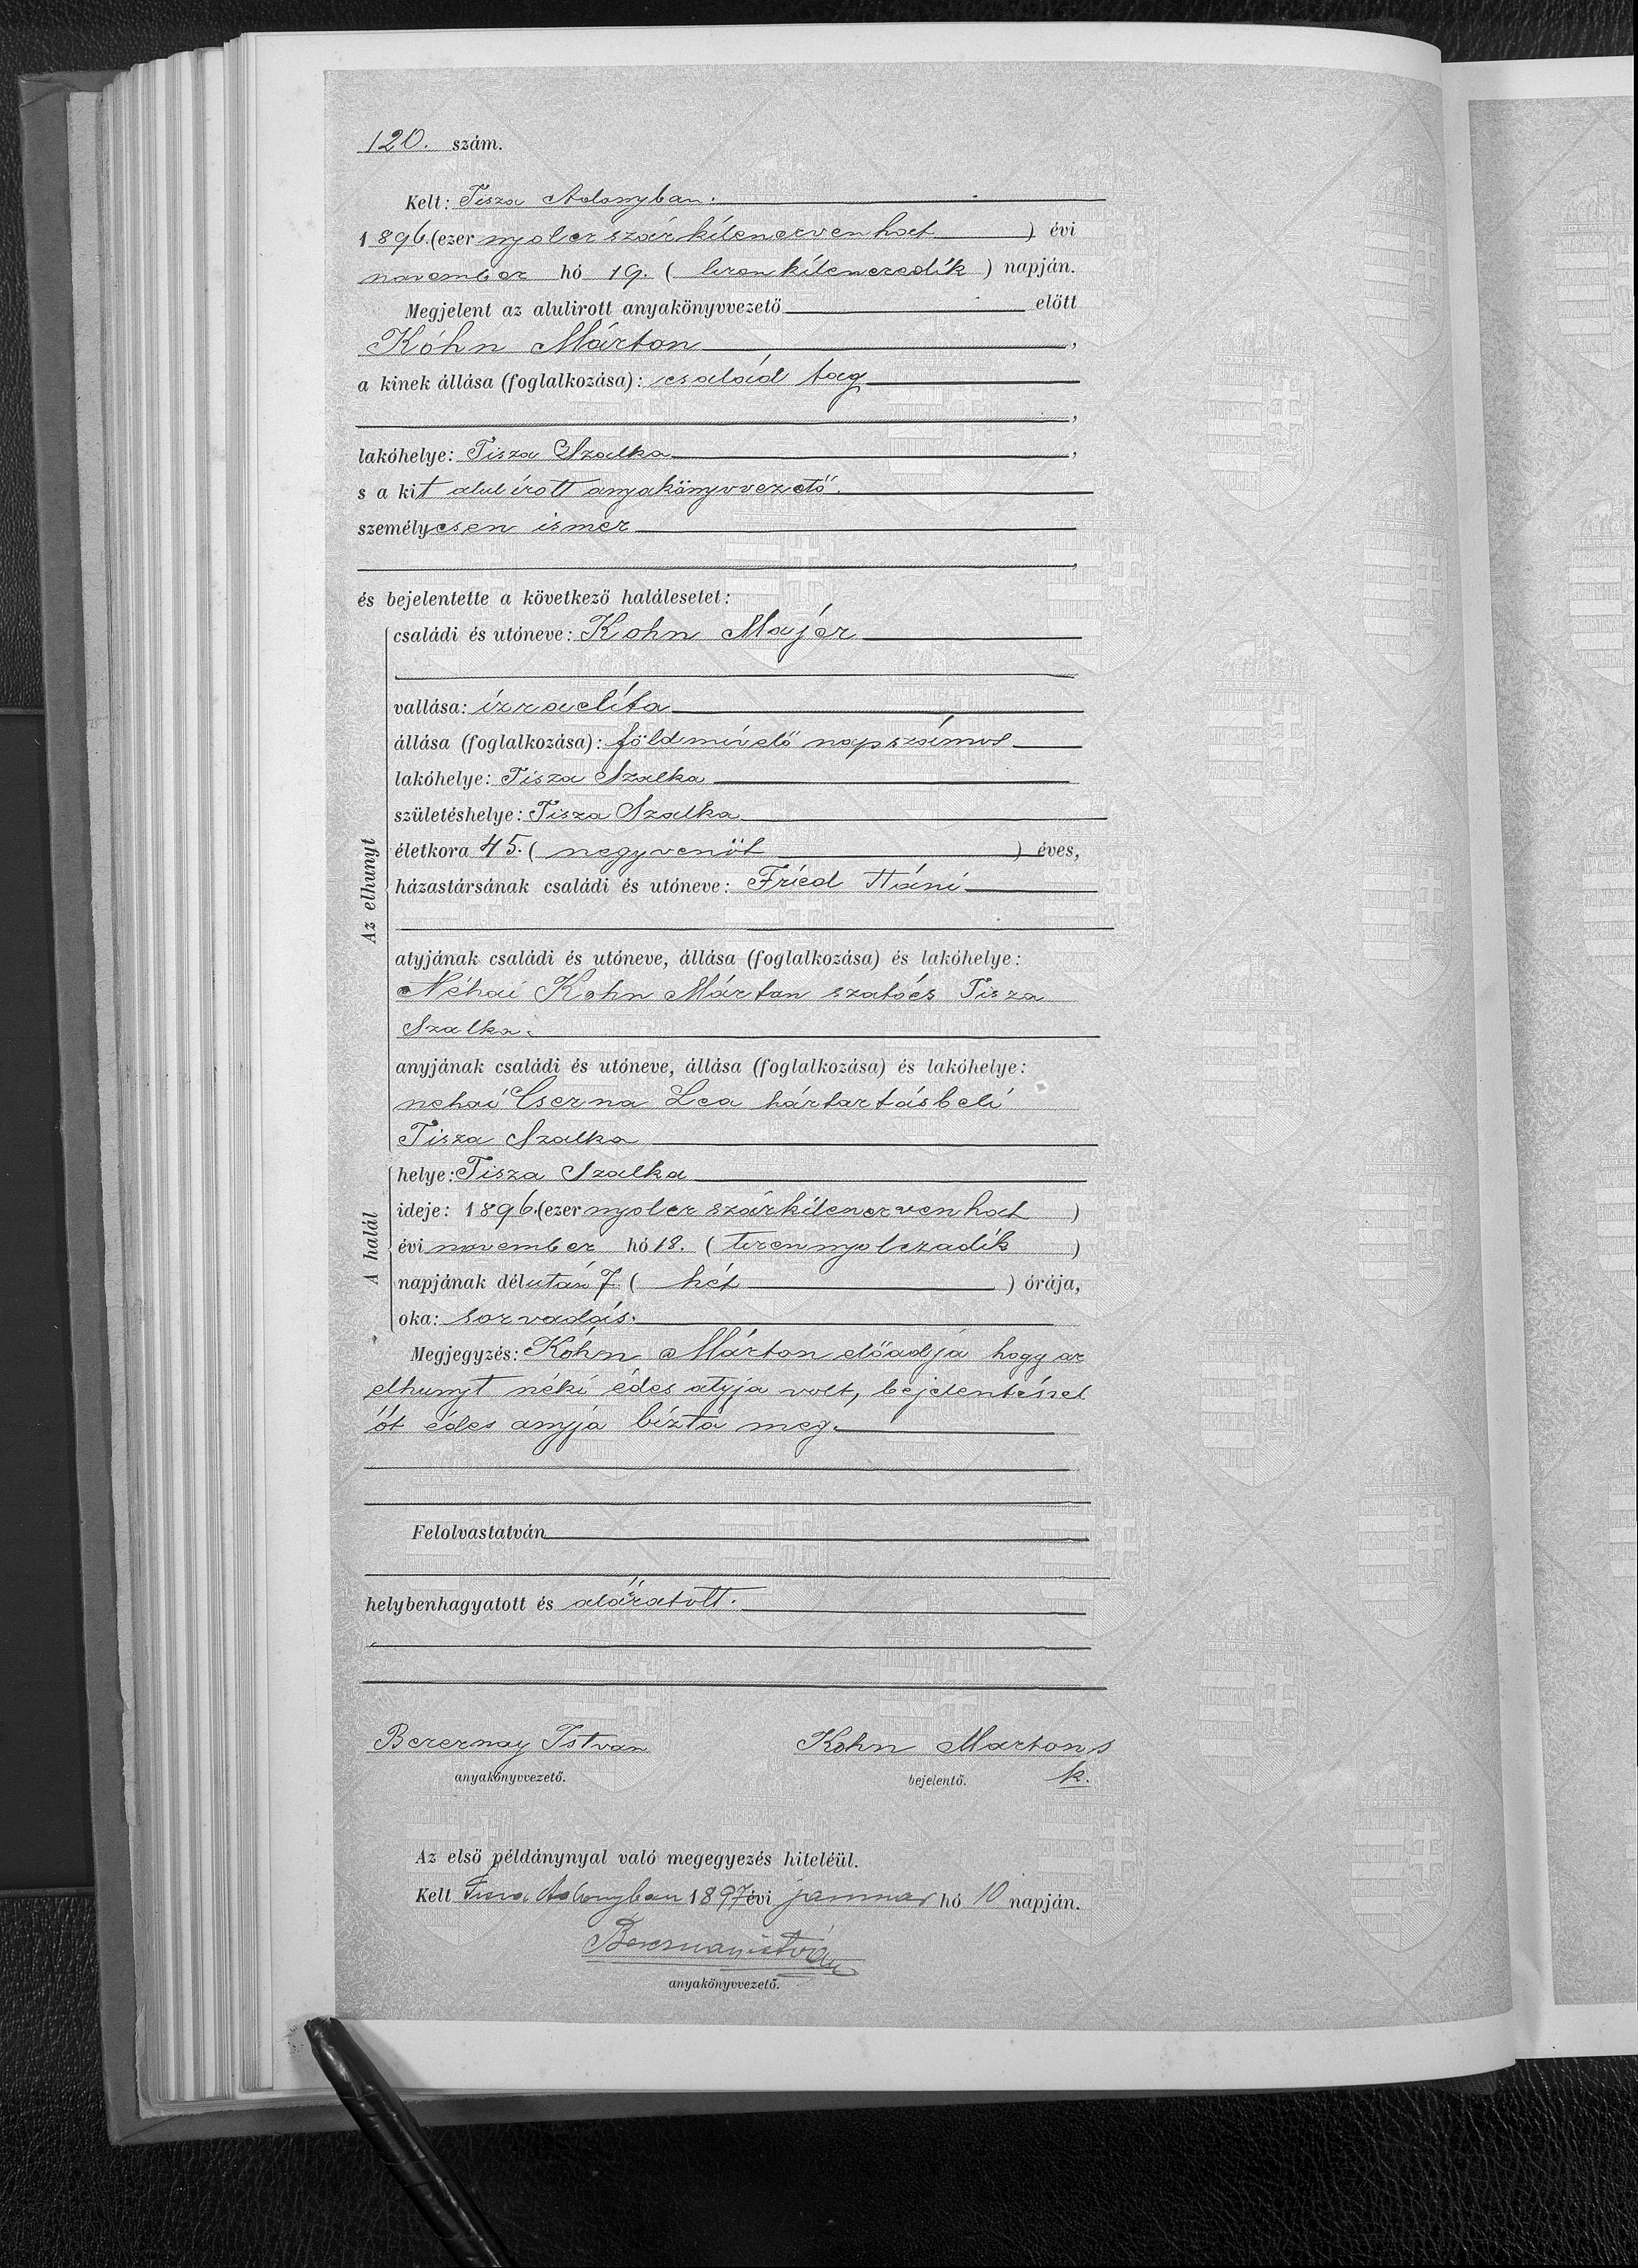 120. szám.
Kelt: Tisza Adonyban.
1896. (ezer nyolcz száz kilenczven hat ) évi
november hó 19. ( tizenkilenczedik ) napján.
Megjelent az alulirott anyakönyvvezető előtt
Kóhn Márton ,
a kinek állása (foglalkozása): család tag
,
lakóhelye: Tisza Szalka ,
s a kit alul írott anyakönyvvezető
személyesen ismer
,
és bejelentette a következő halálesetet:
Az elhunyt
családi és utóneve: Kohn Majer
vallása: izraelita
állása (foglalkozása): földmívelő napszámos
lakóhelye: Tisza Szalka
születéshelye: Tisza Szalka
életkora 45. ( negyvenöt ) éves,
házastársának családi és utóneve: Fried Háni
atyjának családi és utóneve, állása (foglalkozása) és lakóhelye:
Néhai Kohn Márton szatócs Tisza
Szalka.
anyjának családi és utóneve, állása (foglalkozása) és lakóhelye:
nehai Cserna Lea háztartásbeli
Tisza Szalka
A halál
helye: Tisza Szalka
ideje: 1896. (ezer nyolcz százkilenczvenhat )
évi november hó 18. ( tizennyolczadik )
napjának délután 7 ( hét ) órája,
oka: sorvadás.
Megjegyzés: Kóhn Márton előadja hogy az
elhunyt néki édes atyja volt, bejelentéssel
őt édes anyja bízta meg.
Felolvastatván
helybenhagyatott és aláíratott.
Berernay Istvan Kohn Marton s
anyakönyvvezető. bejelentő. k.
Az első példánynyal való megegyezés hiteléül.
Kelt Tisza Adonyban 1897 évi januar hó 10 napján.
István
anyakönyvvezető.